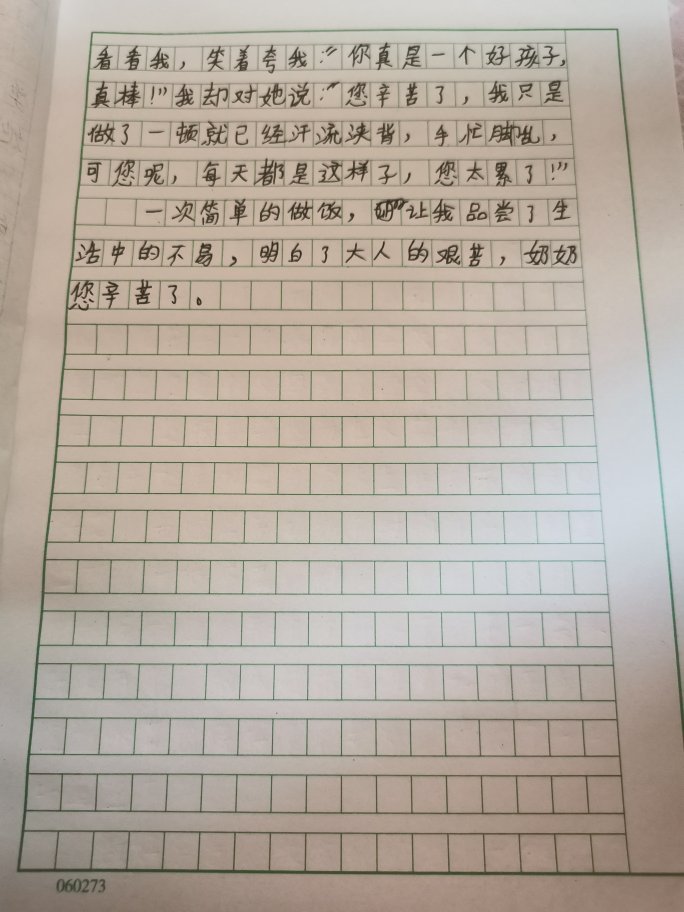 看看我，笑着夸我：“你真是一个好孩子，
真棒！”我却对她说：“您辛苦了，我只是
做了一顿就已经汗流浃背，手忙脚乱，
可您呢，每天都是这样子，您太累了！”
一次简单的做饭，让我品尝了生
活中的不易，明白了大人的艰苦，奶奶
您辛苦了。
060273